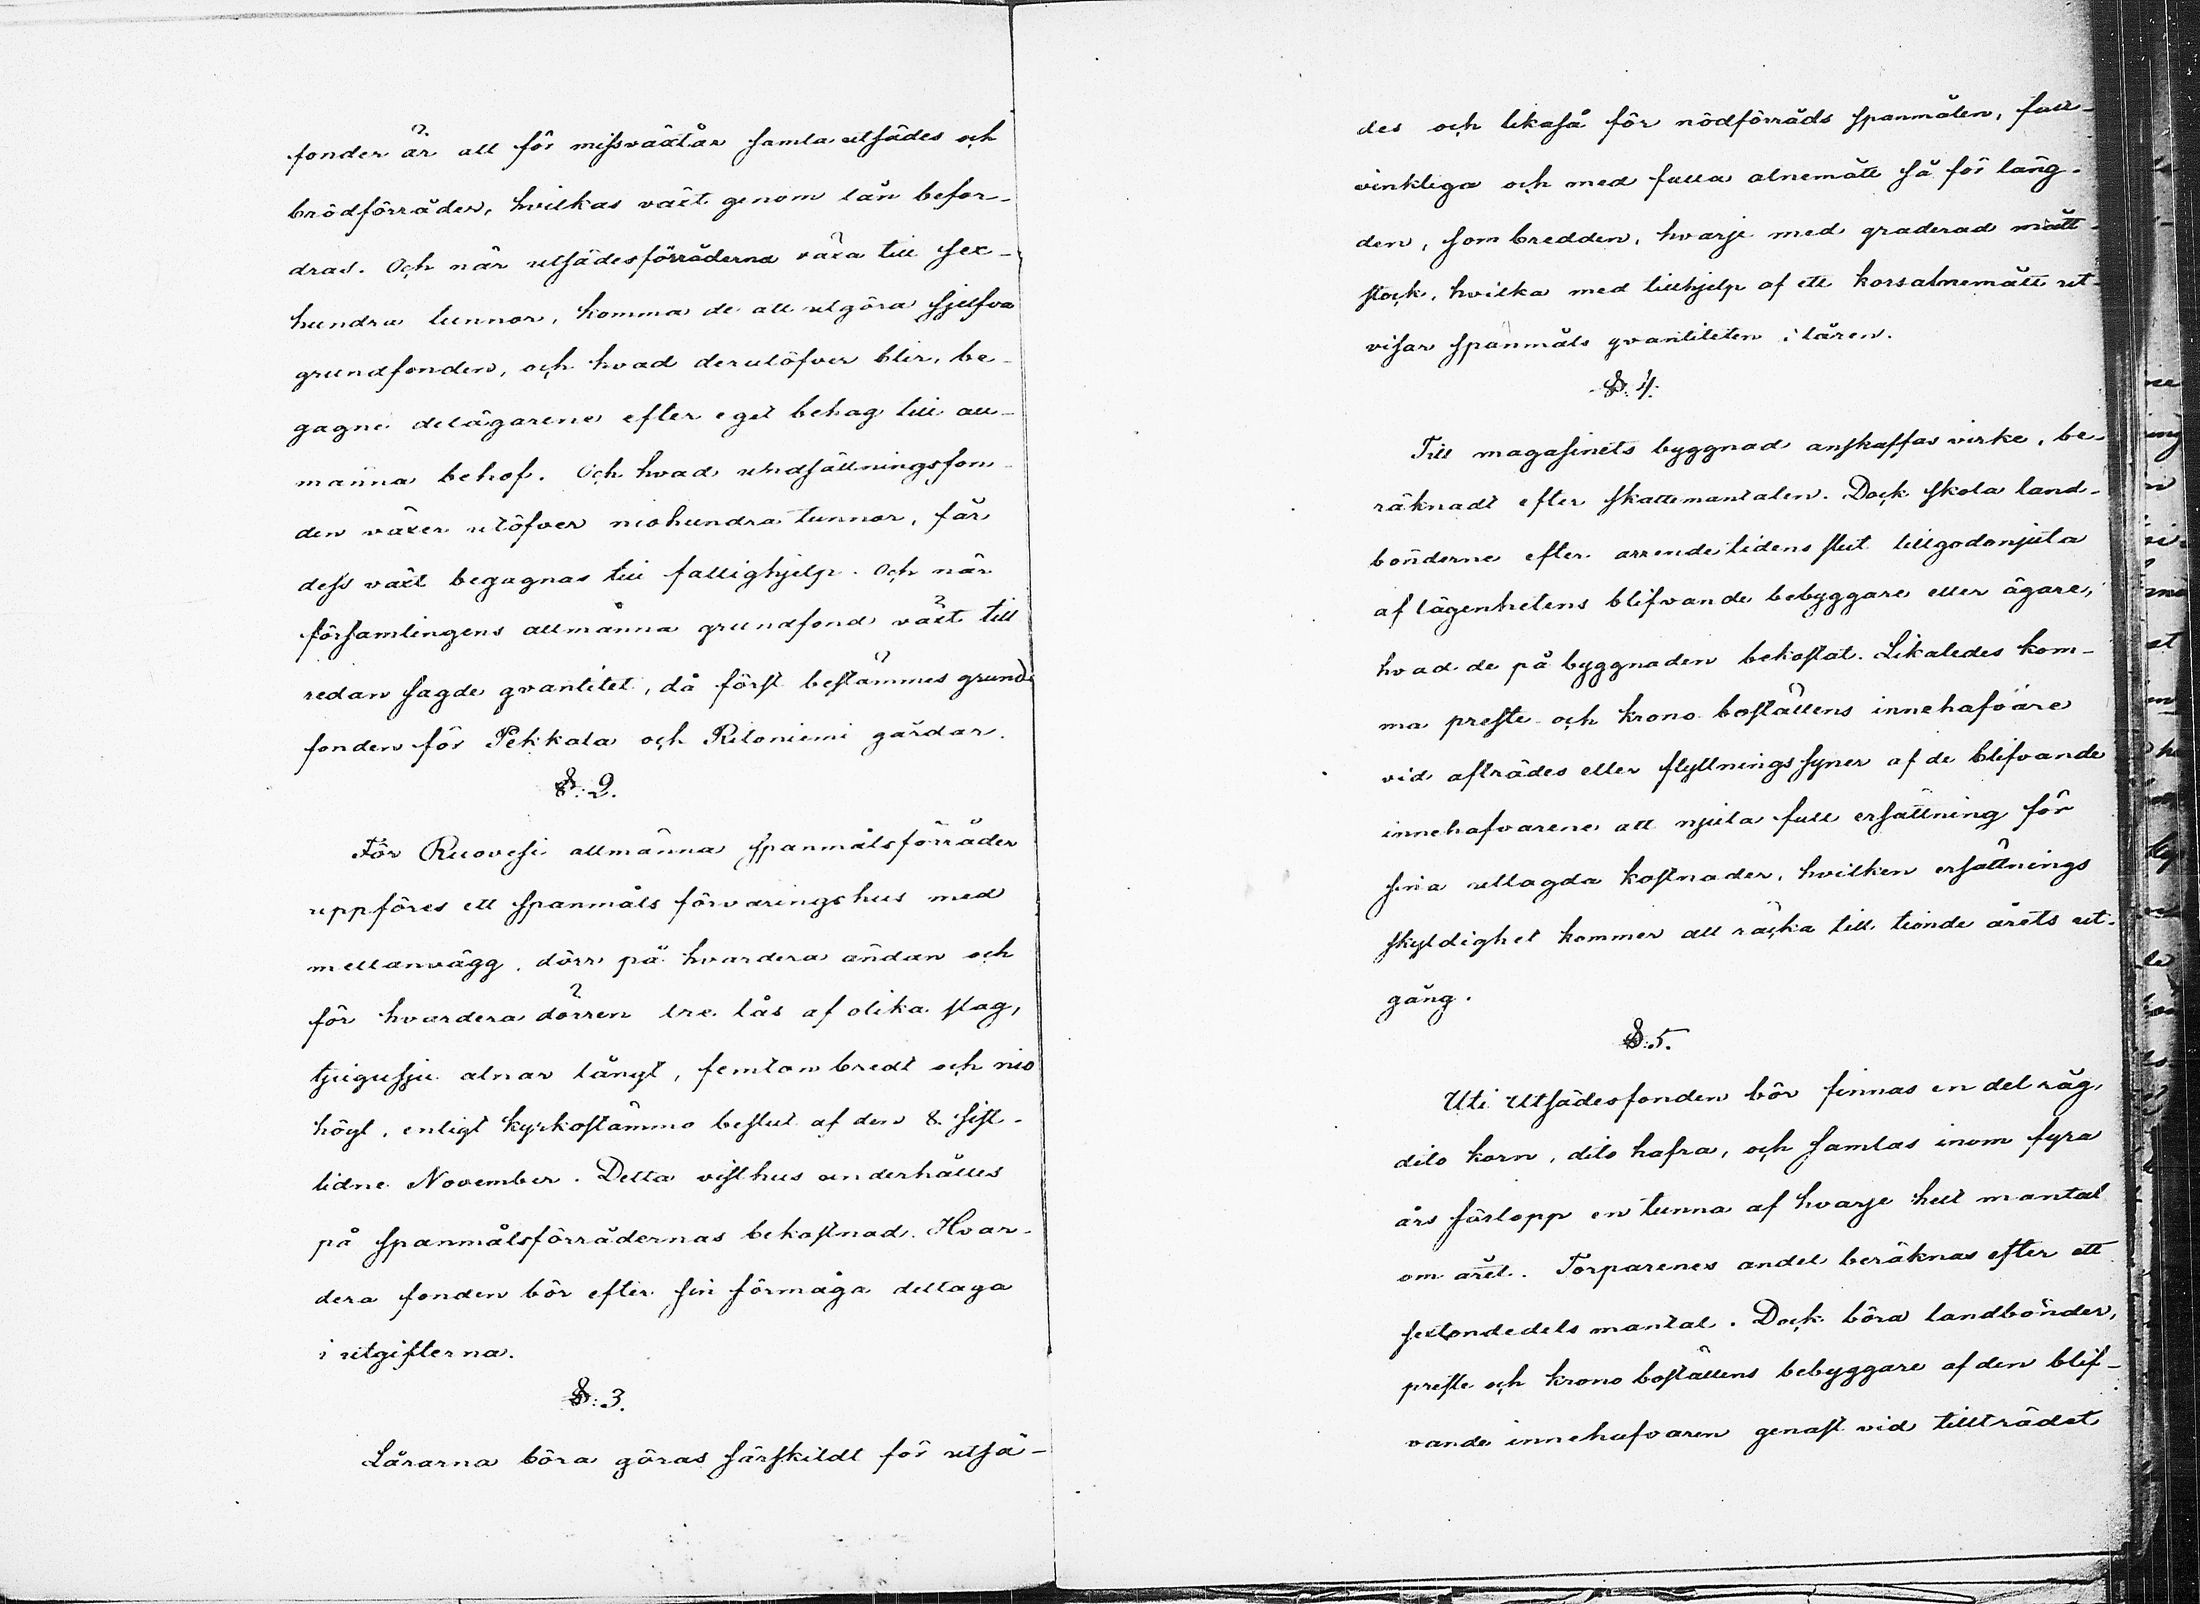 fonder är att för missväxtår samla utsädes och
brödförråder, hvilkas växt genom lån befor-
dras. Och när utsädesförråderna växa till sex-
hundra tunnor, komma de att utgöra sjelfva
grundfonden, och hvad derutöfver blir, be-
gagne delägarene efter eget behag till all-
männa behof. Och hvad undsättningsfon-
den växer utöfver niohundra tunnor, får
dess växt begagnas till fattighjelp. Och när
församlingens allmänna grundfond växt till
redan sagde qvantitet, då först bestämmes grund-
fonden för Pekkala och Ritoniemi gårdar.
§. 2.
För Ruovesi allmänna spanmålsförråder
uppföres ett spanmåls förvaringshus med
mellanvägg, dörr på hvardera ändan och
för hvardera dörren tre lås af olika slag,
tjugusju alnar långt, femton bredt och nio
högt, enligt kyrkostämmo beslut af den 8 sist-
lidne November. Detta visthus underhålles
på spanmålsförrådernas bekostnad. Hvar-
dera fonden bör efter sin förmåga deltaga
i utgifterna.
§. 3.
Lårarna böra göras särskildt för utsä-
des och likaså för nödförråds spanmålen, full-
vinkliga och med fulla alnemått så för läng-
den, som bredden, hvarje med graderad mått-
stock, hvilka med tillhjelp af ett korsalnemått ut-
visar spanmåls qvantiteten i låren.
§. 4.
Till magasinets byggnad anskaffas virke, be-
räknadt efter skattemantalen. Dock skola land-
bönderne efter arrendetidens slut tillgodonjuta
af lägenhetens blifvande bebyggare eller ägare,
hvad de på byggnaden bekostat. Likaledes kom-
ma preste och krono boställens innehafvare
vid afträdes eller flyttnings syner af de blifvande
innehafvarene att njuta full ersättning för
sina utlagda kostnader, hvilken ersättnings
skyldighet kommer att räcka till tionde årets ut-
gång.
§. 5.
Uti Utsädesfonden bör finnas en del råg,
dito korn, dito hafra, och samlas inom fyra
års förlopp en tunna af hvarje helt mantal
om året. Torparenes andel beräknas efter ett
sextondedels mantal. Dock böra landbönder,
preste och krono boställens bebyggare af den blif-
vande innehafvaren genast vid tillträdet